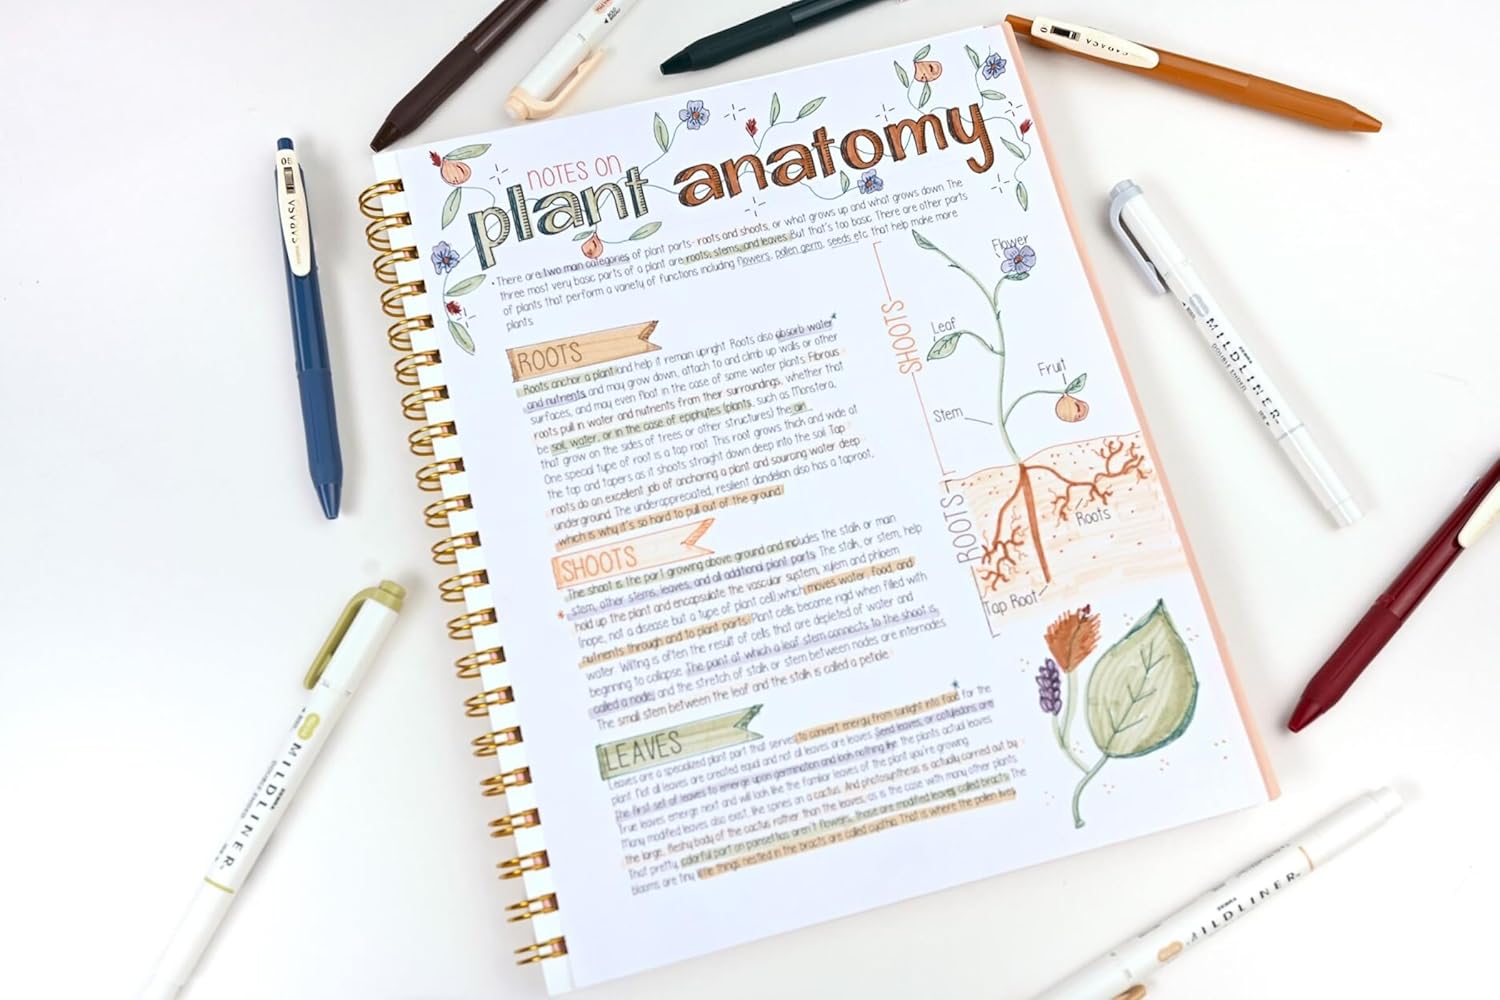 NOTES ON
plant anatomy
• There are two main categories of plant parts- roots and shoots, or what grows up and what grows down. The
three most very basic parts of a plant are roots, stems, and leaves. But that's too basic. There are other parts
of plants that perform a variety of functions including flowers, pollen germ, seeds etc that help make more
plants.
ROOTS
Roots anchor a plant and help it remain upright. Roots also absorb water
and nutrients and may grow down, attach to and climb up walls or other
surfaces, and may even float in the case of some water plants. Fibrous
roots pull in water and nutrients from their surroundings, whether that
be soil, water, or in the case of epiphytes (plants, such as Monstera,
that grow on the sides of trees or other structures) the air.
One special type of root is a tap root. This root grows thick and wide at
the top and tapers as it shoots straight down deep into the soil. Tap
roots do an excellent job of anchoring a plant and sourcing water deep
underground. The underappreciated, resilient dandelion also has a taproot,
which is why it's so hard to pull out of the ground!
SHOOTS
The shoot is the part growing above ground and includes the stalk or main
stem, other stems, leaves, and all additional plant parts. The stalk, or stem, help
hold up the plant and encapsulate the vascular system, xylem and phloem
(nope, not a disease but a type of plant cell) which moves water, food, and
nutrients through and to plant parts. Plant cells become rigid when filled with
water. Wilting is often the result of cells that are depleted of water and
beginning to collapse. The point at which a leaf stem connects to the shoot is
called a node, and the stretch of stalk or stem between nodes are internodes.
The small stem between the leaf and the stalk is called a petiole.
LEAVES
Leaves are a specialized plant part that serves to convert energy from sunlight into food for the
plant. Not all leaves are created equal and not all leaves are leaves. Seed leaves, or cotyledons are
the first set of leaves to emerge upon germination and look nothing like the plants actual leaves.
True leaves emerge next and will look like the familiar leaves of the plant you're growing.
Many modified leaves also exist, like spines on a cactus. And photosynthesis is actually carried out by
the large, fleshy body of the cactus rather than the leaves, as is the case with many other plants.
That pretty, colorful part on poinsettias aren't flowers, those are modified leaves called bracts. The
blooms are tiny little things nestled in the bracts are called cyathia. That is where the pollen lives.
SHOOTS
Flower
Leaf
Fruit
Stem
ROOTS
Roots
Tap Root
SARASA
05
SARASA
MILDLINER
DOUBLE ENDED
MILDLINER
ZEBRA
MILDLINER